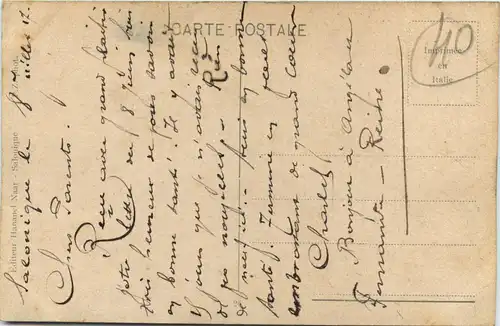 CARTE POSTALE
Imprimée
en
Italie
40
Editeur Hananel Naar - Salonique
Salonique le 8 Juillet 17
Chers Parents.
Reçu avec grand plaisir
votre lettre du 8 Juin suis
très heureux de vous savoir
en bonne santé. Il y avait
jours que je n'avais reçu
de vos nouvelles. Rien
de neuf ici. suis en bonne
santé. J'
embrassant de grand cœur
Charles
Bonjour à
Fernande - Reine